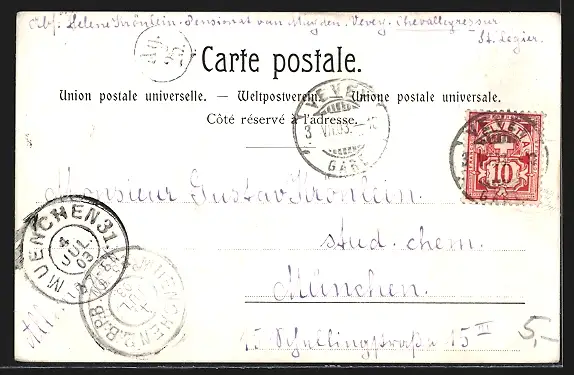 Abs. Helene Krönlein. Pensionat van Muyden. Vevey. Chevalleyressur
St. Légier.
Carte postale.
Union postale universelle. — Weltpostverein. — Unione postale universale.
Côté réservé à l'adresse.
VEVEY
3 VII.03.
GARE
HELVETIA
10
Monsieur Gustav Krönlein
stud. chem.
München.
15 Schellingstraße 15 III
MUENCHEN 31.
4
JUL
03
MUENCHEN 2. B.P.B
5,-